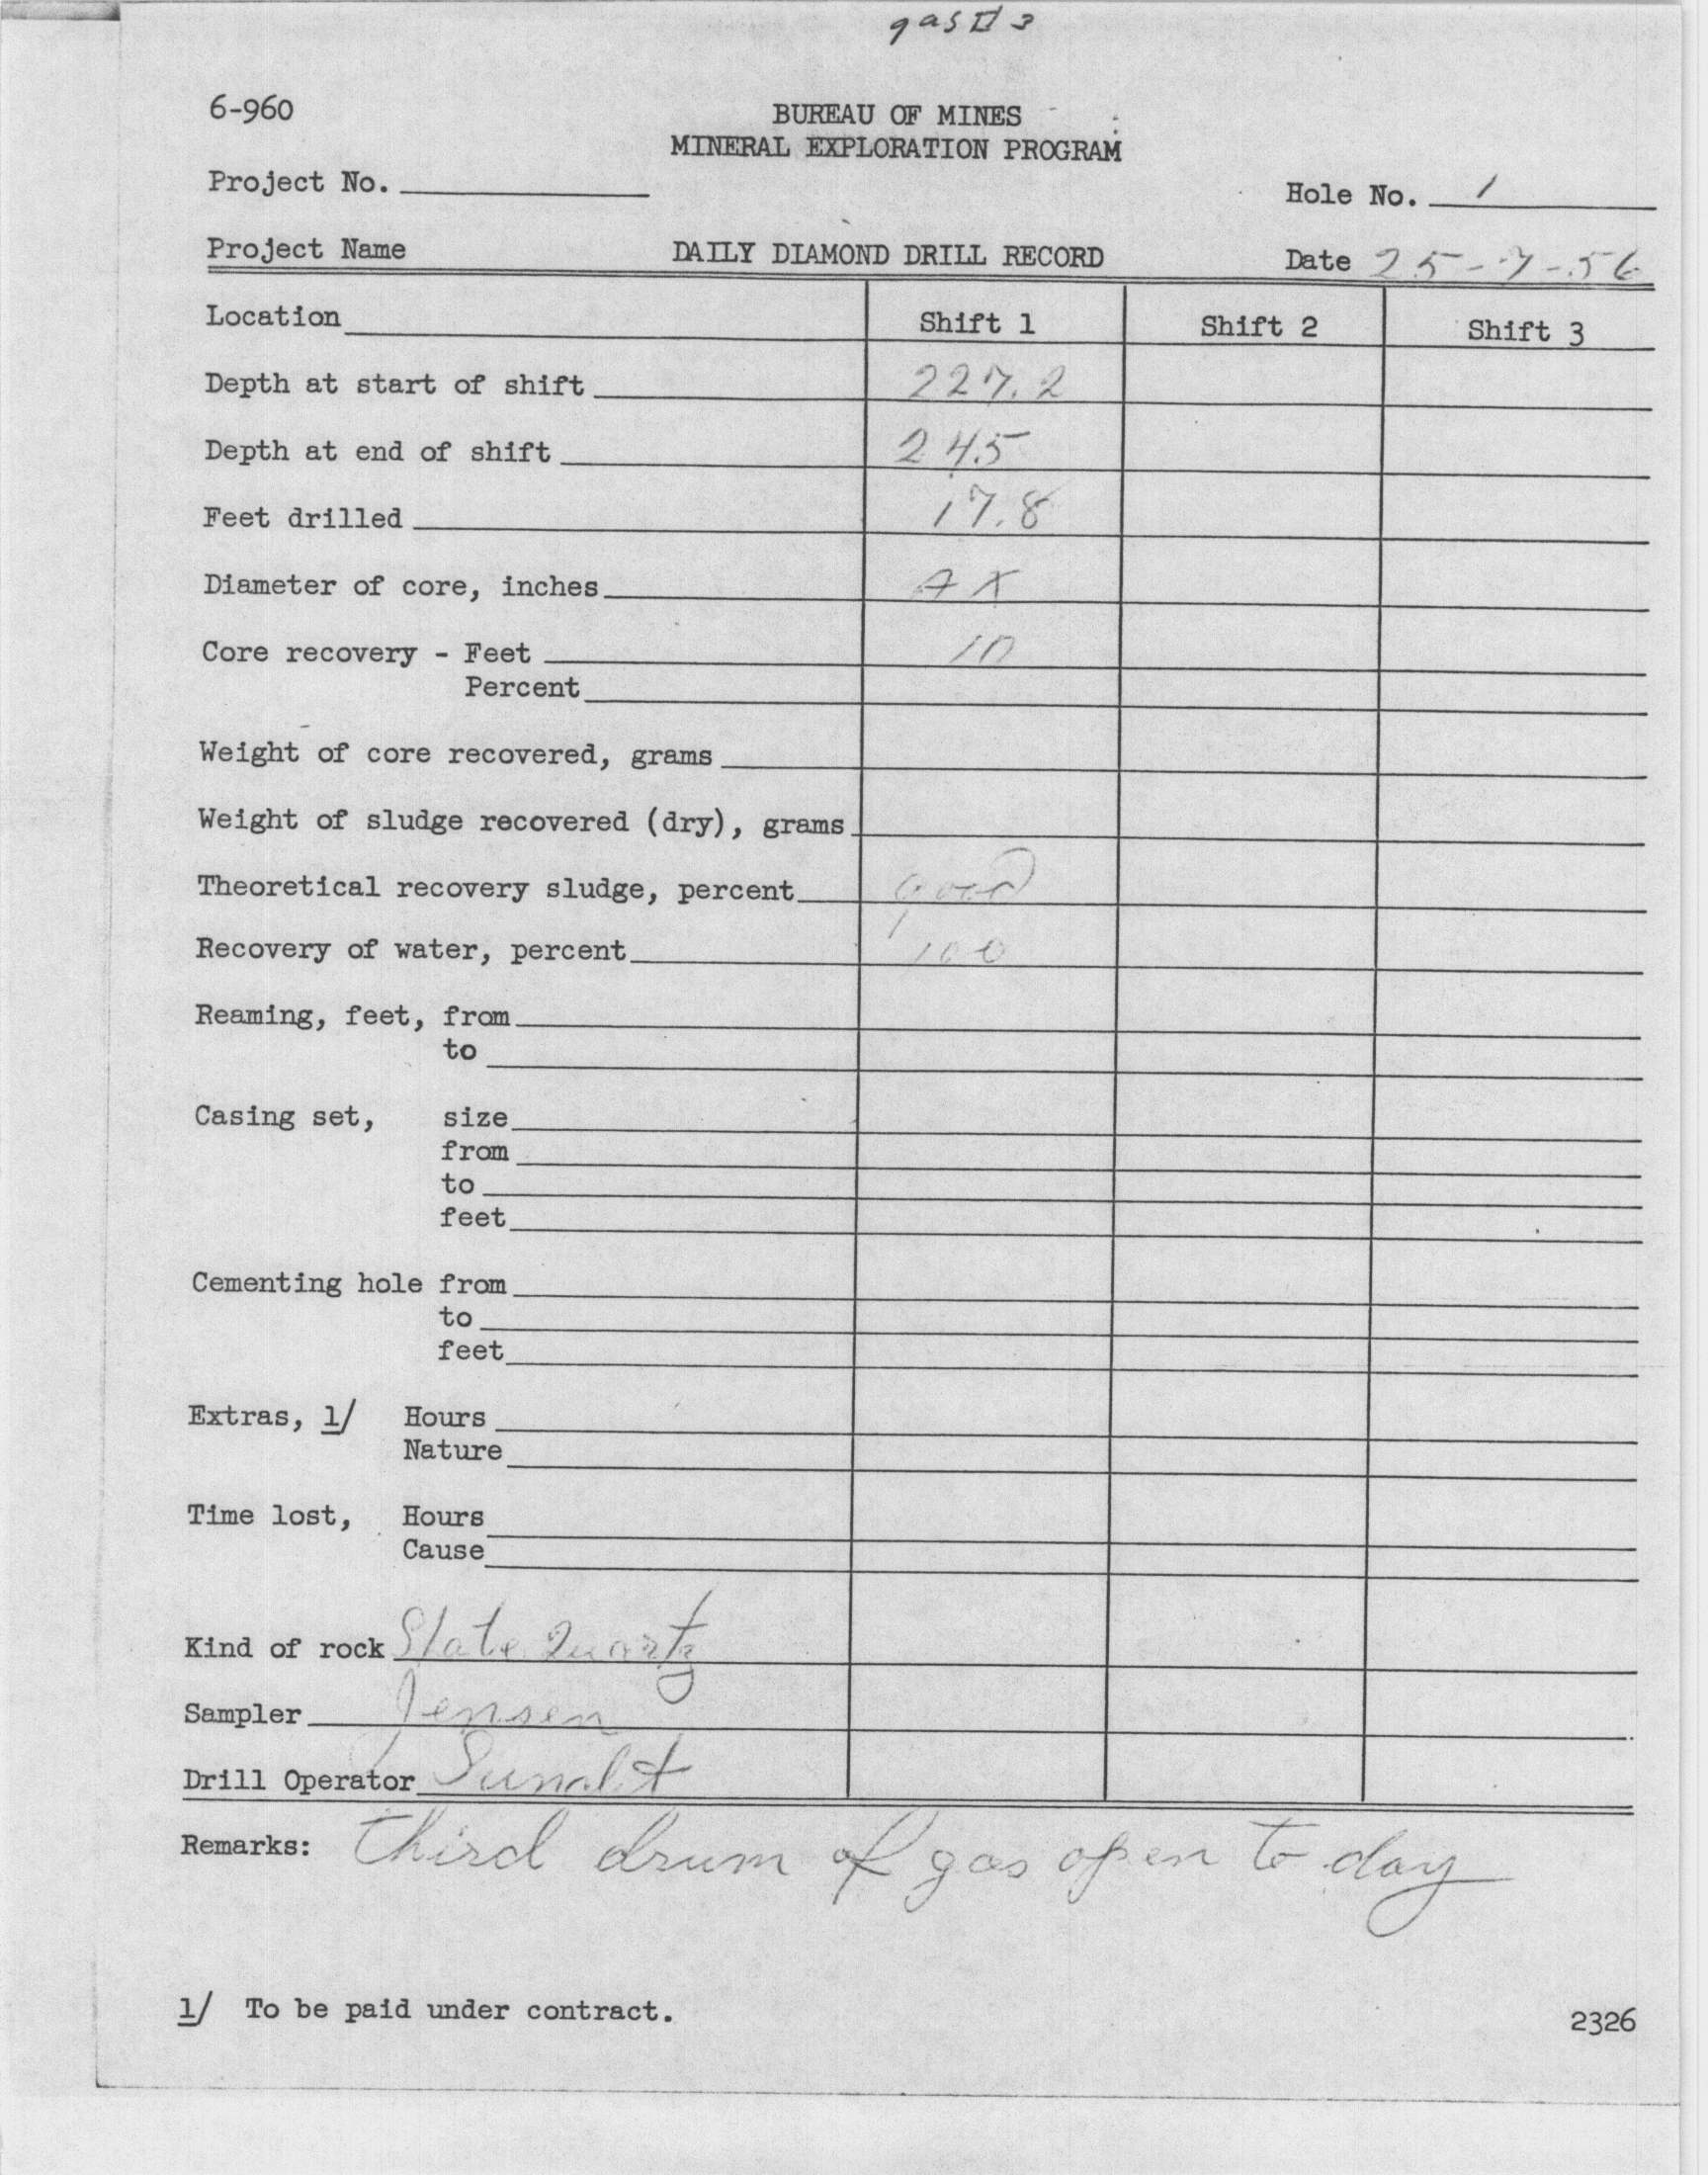 gas # 3
6-960
BUREAU OF MINES
MINERAL EXPLORATION PROGRAM
Project No.
Hole No. 1
Project Name DAILY DIAMOND DRILL RECORD Date 25-7-56
Location Shift 1 Shift 2 Shift 3
Depth at start of shift 227.2
Depth at end of shift 245
Feet drilled 17.8
Diameter of core, inches AX
Core recovery - Feet 10
Percent
Weight of core recovered, grams
Weight of sludge recovered (dry), grams
Theoretical recovery sludge, percent good
Recovery of water, percent 100
Reaming, feet, from
to
Casing set, size
from
to
feet
Cementing hole from
to
feet
Extras, 1/ Hours
Nature
Time lost, Hours
Cause
Kind of rock Slate Quartz
Sampler Jensen
Drill Operator
Remarks: third drum of gas open to day
1/ To be paid under contract.
2326